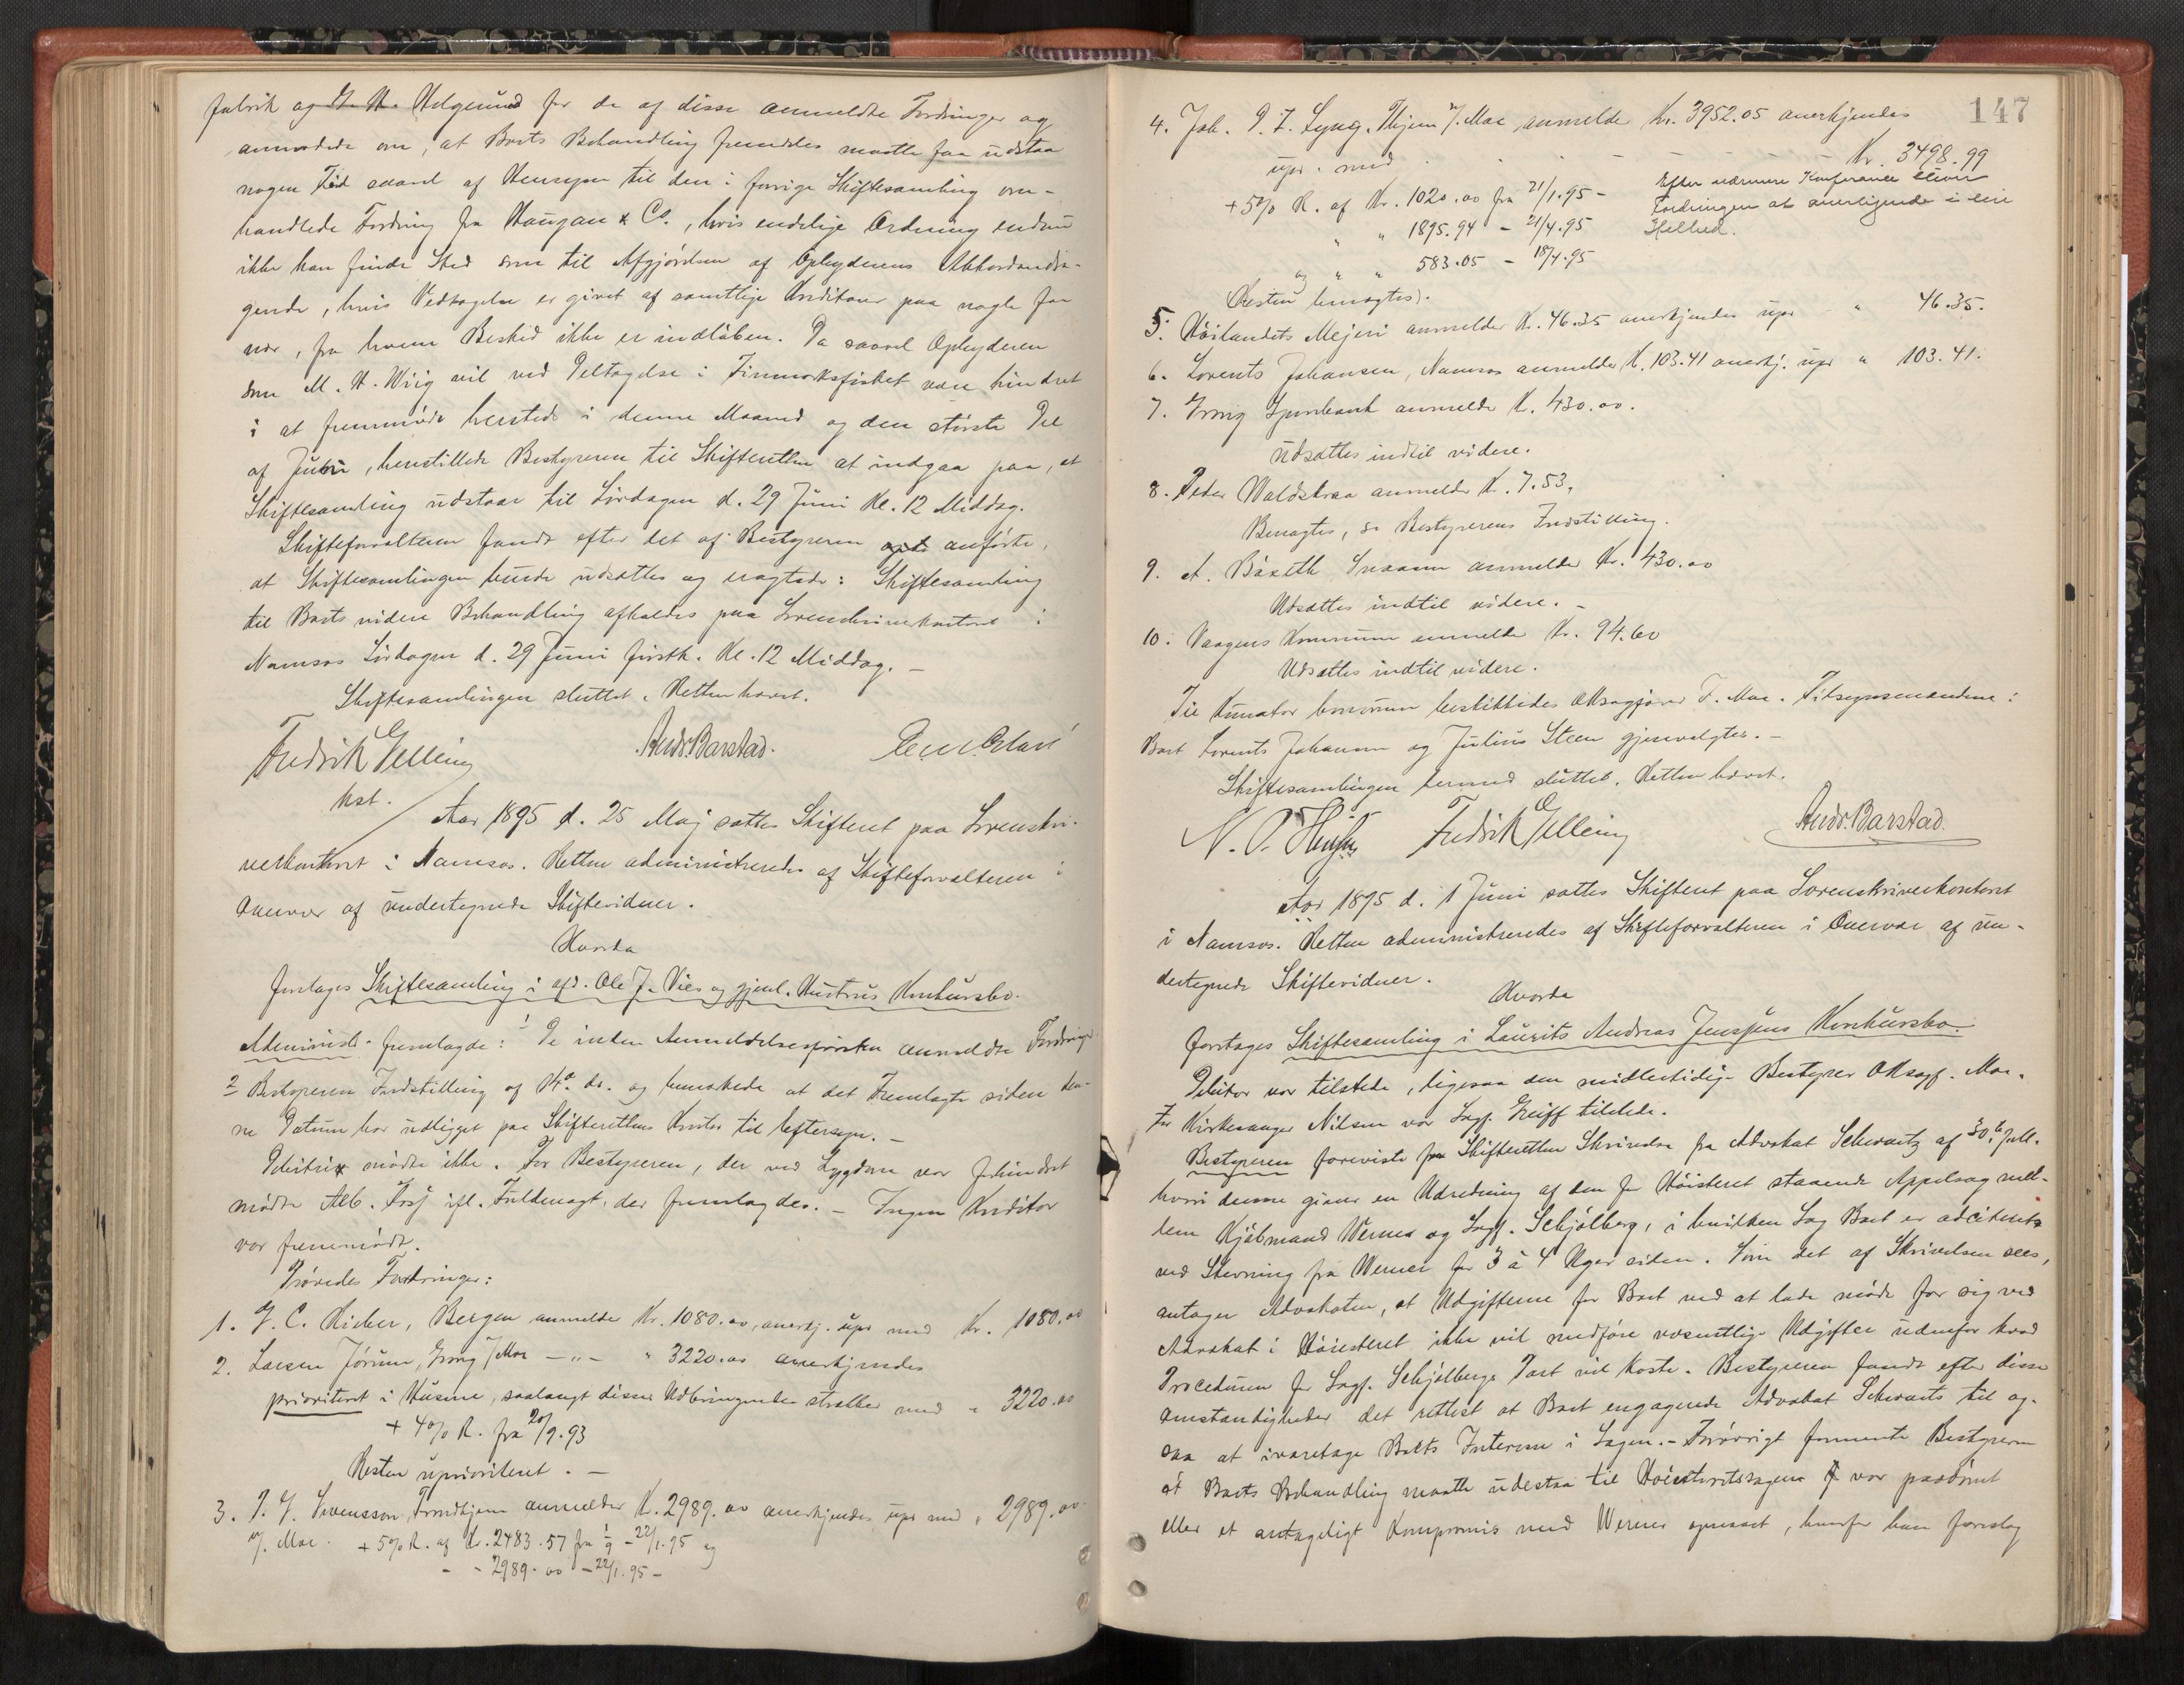 fabrik og G. A. Helgerud for de af disse anmeldte Fordringer og
anmodede om, at Boets Behandling fremdeles maatte faa udstaa
nogen Tid saavel af Hensyn til den i forrige Skiftesamling om-
handlede Fordring fra Haugan & Co., hvis endelige Ordning endnu
ikke kan finde Sted som til Afgjörelsen af Opbyderens Akkordandra-
gende, hvis Vedtagelse er givet af samtlige Kreditorer paa nogle faa
nær, fra hvem Besked ikke er indlöben. Da saavel Opbyderen
som M. A. Wiig vil ved Deltagelse i Finmarksfisket være hindret
i at fremmöde hersteds i denne Maaned og den störste Del
af Juni, henstillede Bestyreren til Skifteretten at indgaa paa, at
Skiftesamling udstaar til Lördagen d. 29 Juni Kl. 12 Middag.
Skifteforvalteren fandt efter det af Bestyreren anförte,
at Skiftesamlingen burde udsættes og eragtede: Skiftesamling
til Boets videre Behandling afholdes paa Sorenskriverkontoret i
Namsos Lördagen d. 29 Juni förstk. Kl. 12 Middag. –
Skiftesamlingen sluttet. Retten hævet.
Fredrik Gelleing Andr. Barstad.
kst.
Aar 1895 d. 25 Maj sattes Skifteret paa Sorenskri-
verkontoret i Namsos. Retten administreredes af Skifteforvalteren i
Overvær af undertegnede Skiftevidner.
Hvorda
foretoges Skiftesamling i afd. Ole J. Vies og gjenl. Hustrus Konkursbo.
Administr. fremlagde: 1 De inden Anmeldelsesfristen anmeldte Fordringer
2 Bestyrerens Indstilling af 14de ds. og bemærkede at det Fremlagte siden den-
ne Datum har udligget paa Skifterettens Kontor til Eftersyn. –
Debitrix mödte ikke. For Bestyreren, der ved Sygdom var forhindret
mödte Alb. ifl. Fuldmagt, der fremlagdes. – Ingen Kreditor
var fremmödt.
Prövedes Fordringer:
1. G. C. Rieber, Bergen anmelder Kr. 1080.00, anerkj. upr med Kr. 1080.00
2. Larsen Jörum, Grong / Moe – „ – „ 3220.00 anerkjendes
prioriteret i Husene, saalangt disses Udbringende strækker med „ 3220.00
+ 4% R. fra 20/9.93
Resten uprioriteret. –
3. Svensson, Trondhjem anmelder Kr. 2989.00 anerkjendes upr med „ 2989.00
v/ Moe. + 5% R. af Kr. 2483.57 fra 1/9 – 22/1.95 og
– – 2989.00 – 22/1.95 –
147
4. Joh. D. F. Lyng, Thjem v/ Moe anmelder Kr. 3952.05 anerkjendes
upr. med – – – – Kr. 3498.99
+ 5% R. af Kr. 1020.00 fra 21/1.95 – Efter nærmere Konference bliver
„ „ 1895.94 – 21/4.95 Fordringen at anerkjende i sin
og „ „ 583.05 – 18/4.95 Helhed.
(Resten benægtes).
5. Höilandets Mejeri anmelder Kr. 46.35 anerkjendes upr „ 46.35.
6. Lorents Johansen, Namsos anmelder K. 103.41 anerkj. upr „ 103.41.
7. Grong Sparebank anmelder Kr. 430.00.
Udsættes indtil videre.
8. Peder Waldstraa anmelder K. 7.53.
Benægtes, se Bestyrerens Indstilling.
9. A. Snaasen anmelder Kr. 430.00
Udsættes indtil videre. –
10. Vaagens Kommune anmelder Kr. 94.60
Udsættes indtil videre.
Til Kurator bonorum beskikkedes OKsagförer F. Moe. Tilsynsmændene i
Boet Lorents Johansen og Julius Steen gjenvalgtes. –
Skiftesamlingen hermed sluttet. Retten hævet.
Fredrik Gelleing Andr. Barstad.
Aar 1895 d. 1 Juni sattes Skifteret paa Sorenskriverkontoret
i Namsos. Retten administreredes af Skifteforvalteren i Overvær af un-
dertegnede Skiftevidner.
Hvorda
foretoges Skiftesamling i Laurits Andreas Jenssens Konkursbo.
Debitor var tilstede, ligesaa den midlertidige Bestyrer OKsagf. Moe.
For Kirkesanger Nilsen var Sagf. Greiff tilstede.
Bestyreren foreviste for Skifteretten Skrivelse fra Advokat Schwartz af 30te
hvori denne giver en Udredning af den for Höiesteret staaende Appelsag mel-
lem Kjöbmand Werner og Sagf. Schjölberg, i hvilken Sag Boet er adciteret
ved Stevning fra Werner for 3 à 4 Uger siden. Som det af Skrivelsen sees,
antager Advokaten, at Udgifterne for Boet ved at lade möde for sig ved
Advokat i Höiesteret ikke vil medföre væsentlige Udgifter udenfor hvad
Proceduren for Sagf. Schjölbergs Part vil koste. Bestyreren fandt efter disse
Omstændigheder det rettest at Boet engagerede Advokat Schwarts til og-
saa at ivaretage Boets Interesse i Sagen. – Forövrigt formente Bestyreren
at Boets Behandling maatte udestaa til Höiesteretssagen var paadömt
eller et antageligt Kompromis med Werner opnaaet, hvorfor han foreslog